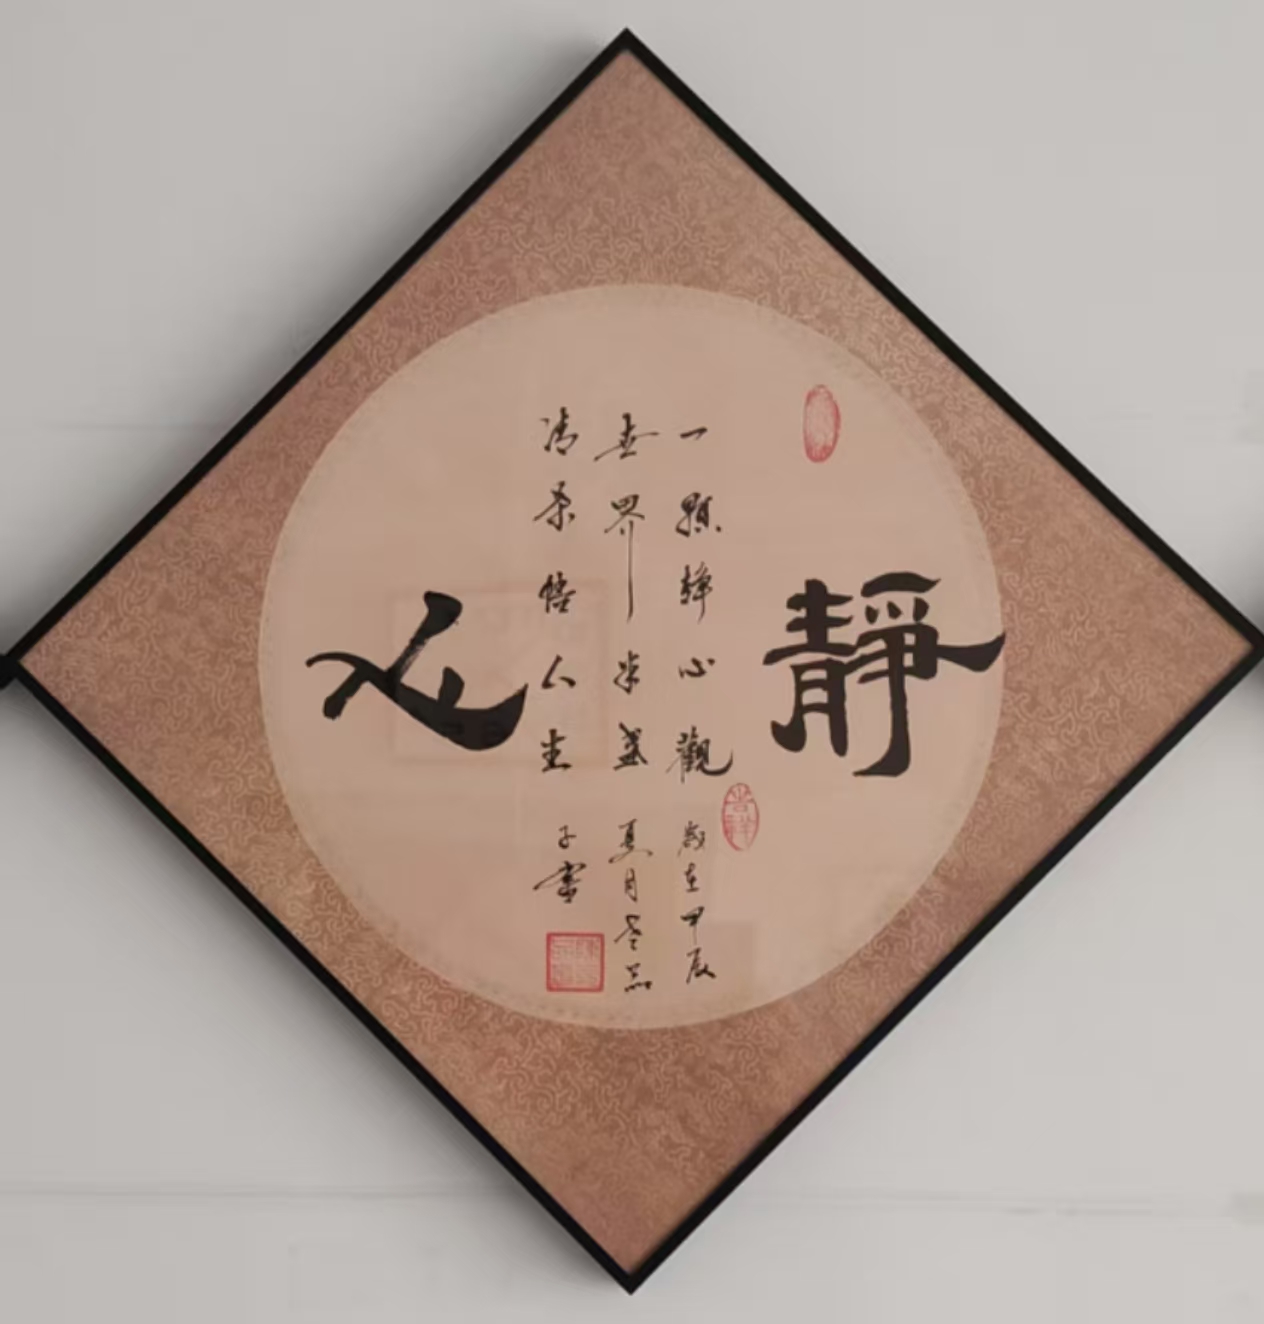 靜心
一顆靜心觀
世界半盞
清茶悟人生
歲在甲辰
夏月
子書
吉祥